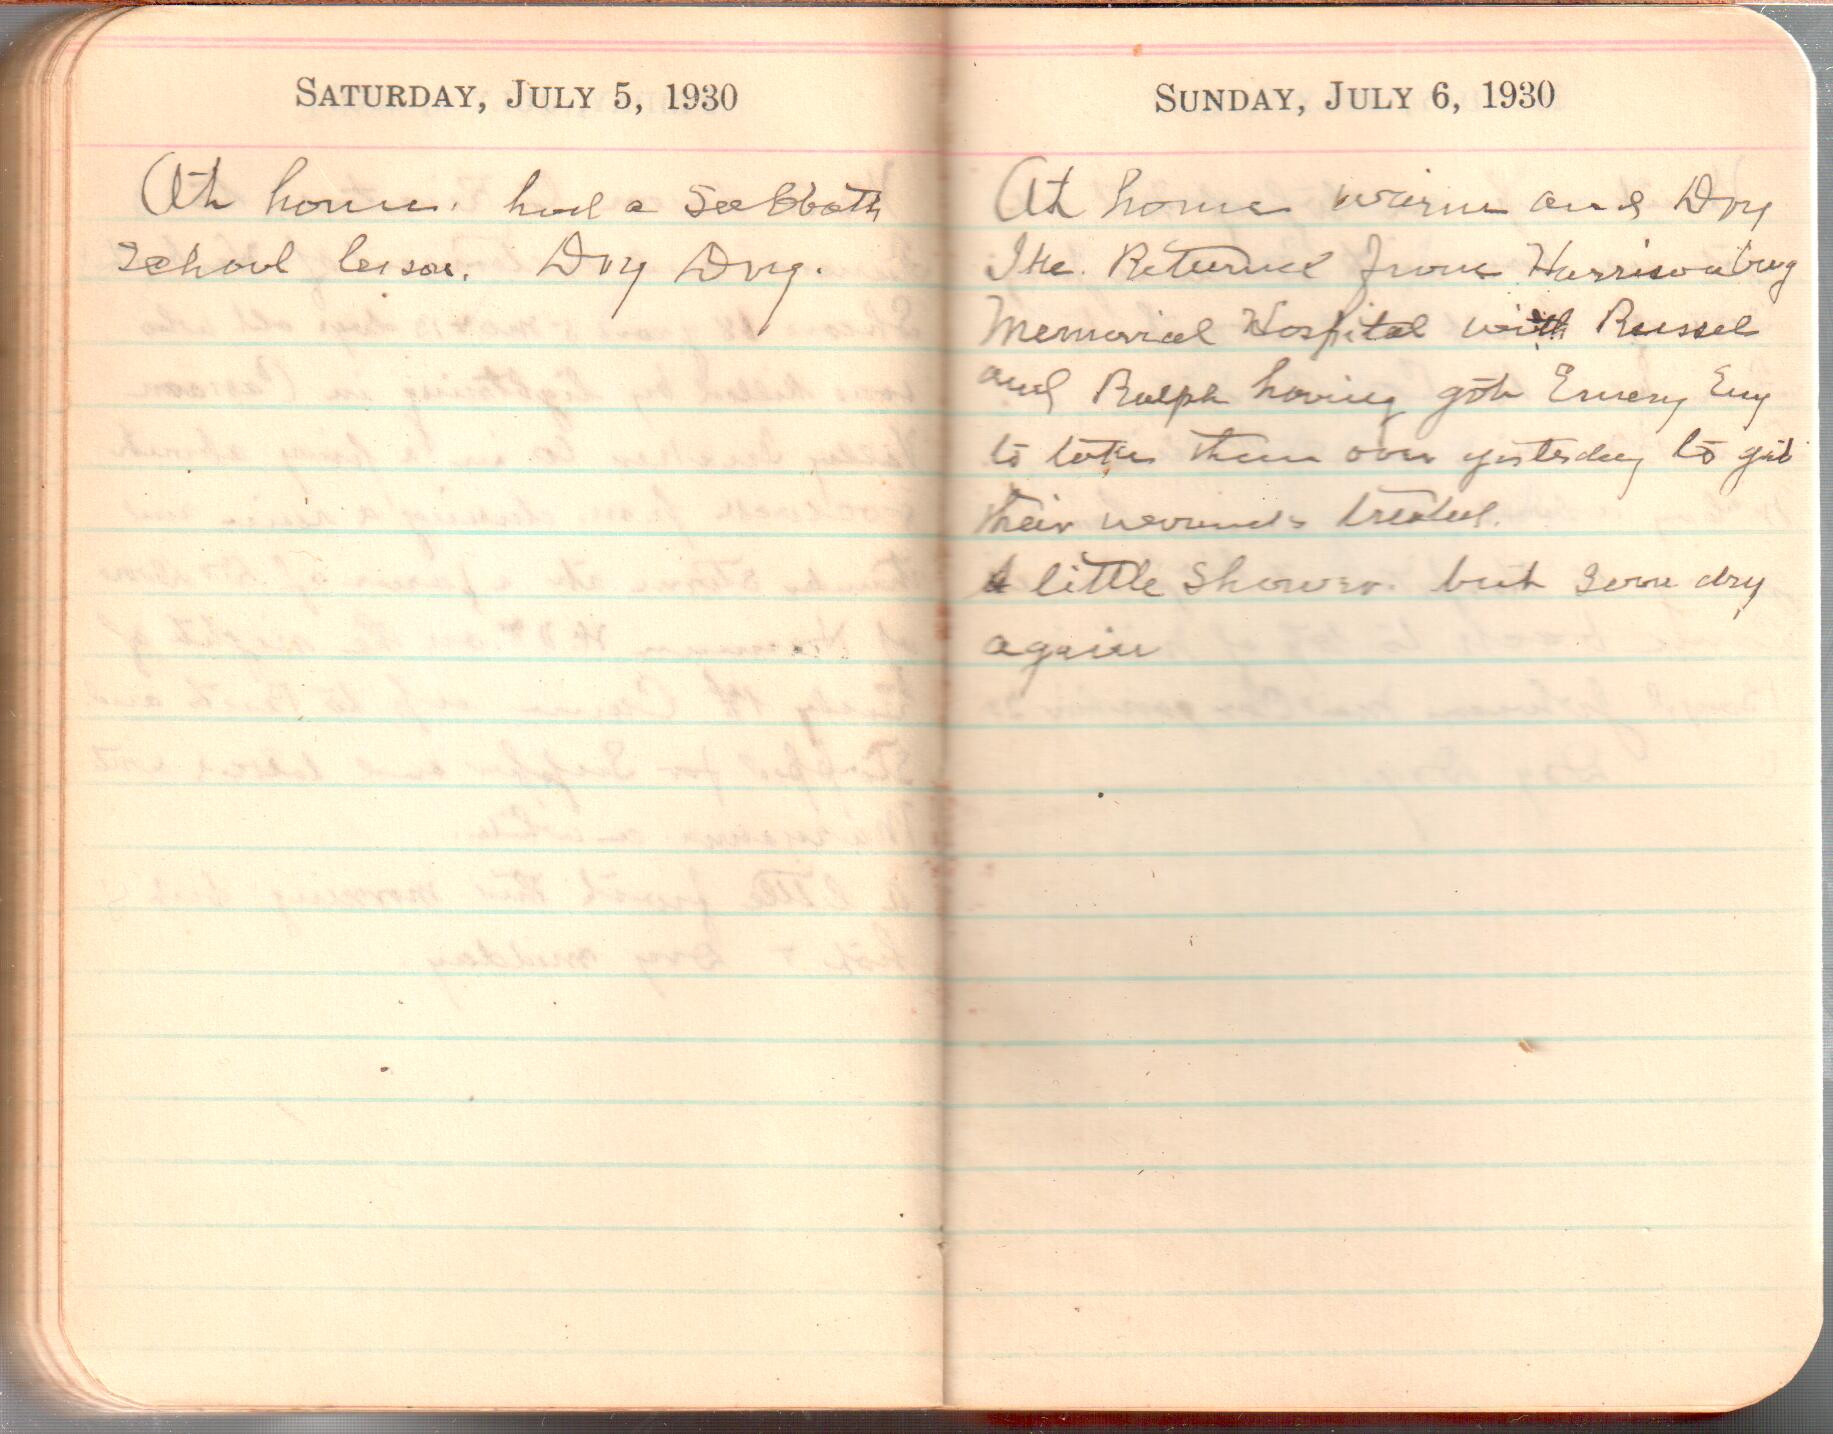 SATURDAY, JULY 5, 1930
At home. had a Sabbath
School lesson. Dry Dry.
SUNDAY, JULY 6, 1930
At home warm and Dry
Ike. Returned from Harrisonburg
Memorial Hospital with Russel
and Ralph having got Emery Eny
to take them over yesterday to get
their wounds treated.
A little Shower. but soon dry
again